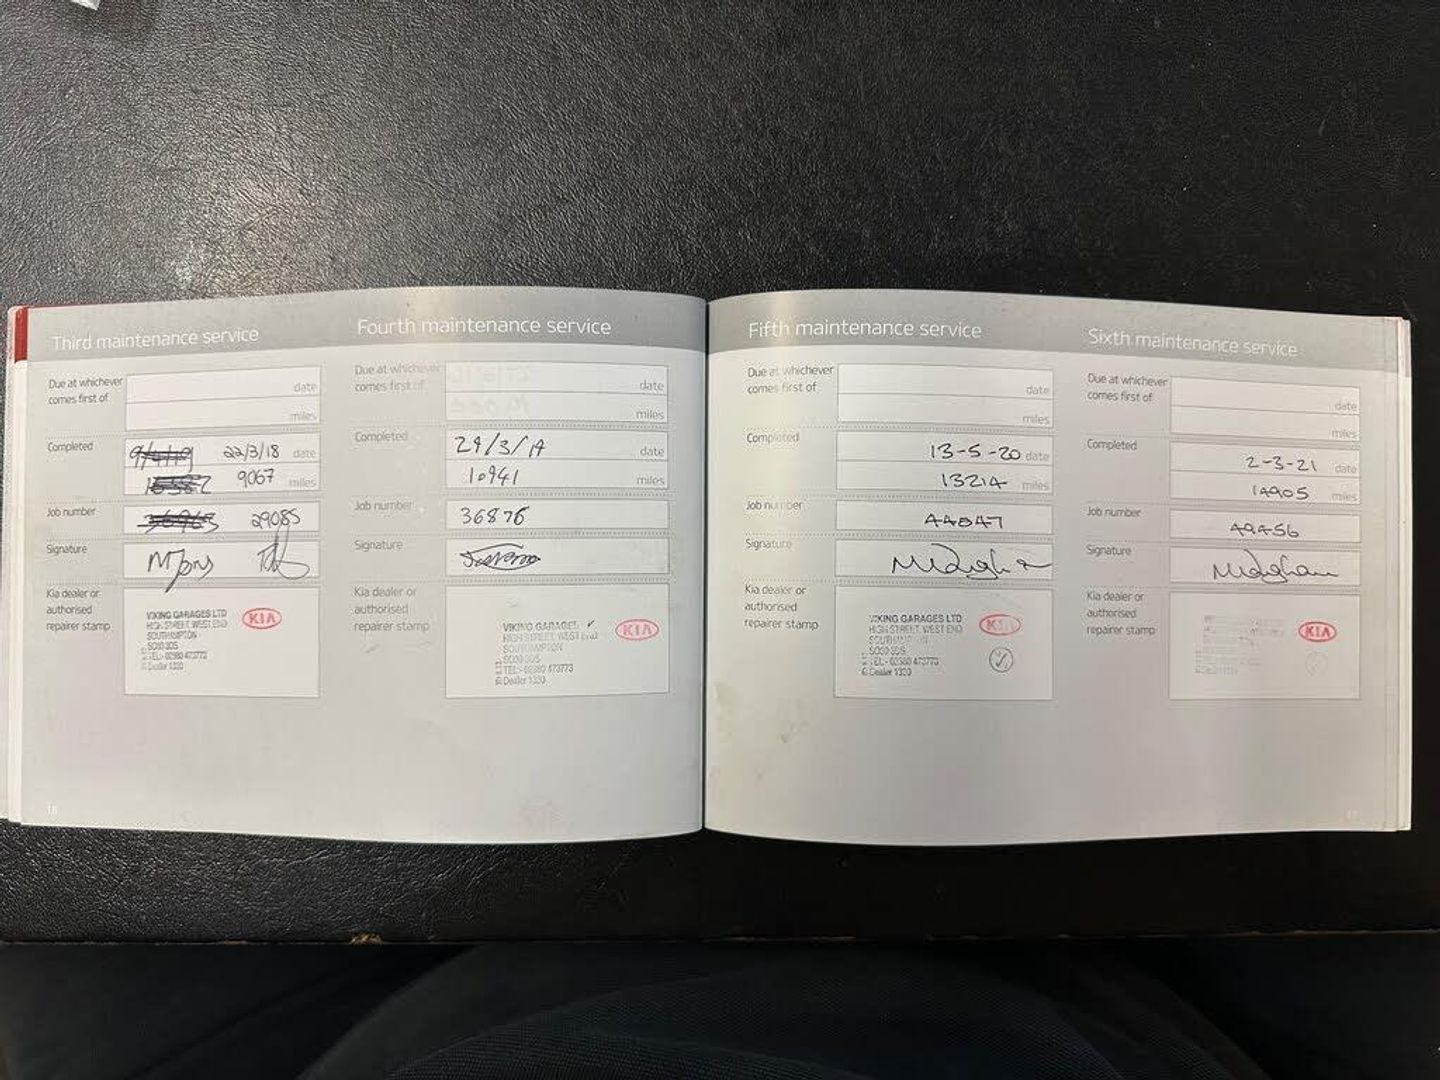 Third maintenance service
Due at whichever
comes first of
date
miles
Completed
9/4/19 22/3/18 date
9067 miles
Job number
29085
Signature
Kia dealer or
authorised
repairer stamp
VIKING GARAGES LTD
HIGH STREET, WEST END
SOUTHAMPTON
SO30 3DS
TEL:- 02380 473773
Dealer 1330
KIA
18
Fourth maintenance service
Due at whichever
comes first of
date
miles
Completed
29/3/19 date
10941 miles
Job number
36876
Signature
Kia dealer or
authorised
repairer stamp
VIKING GARAGES
HIGH STREET, WEST END
SOUTHAMPTON
SO30 3DS
TEL:- 02380 473773
Dealer 1330
KIA
Fifth maintenance service
Due at whichever
comes first of
date
miles
Completed
13-5-20 date
13214 miles
Job number
44847
Signature
Kia dealer or
authorised
repairer stamp
VIKING GARAGES LTD
HIGH STREET, WEST END
SOUTHAMPTON
SO30 3DS
TEL:- 02380 473773
Dealer 1330
KIA
Sixth maintenance service
Due at whichever
comes first of
date
miles
Completed
2-3-21 date
14905 miles
Job number
49456
Signature
Kia dealer or
authorised
repairer stamp
KIA